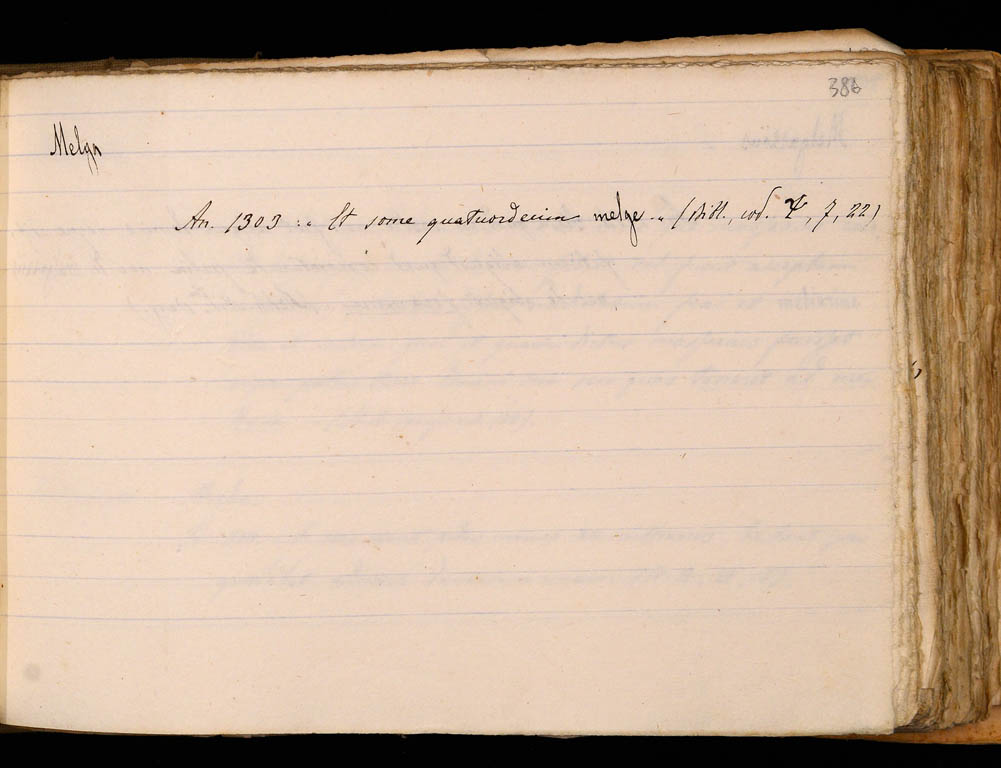 386
Melga
An. 1303 : „ Et some quatuordecim melge „ (Bibl. cod. Ψ, 7, 22)